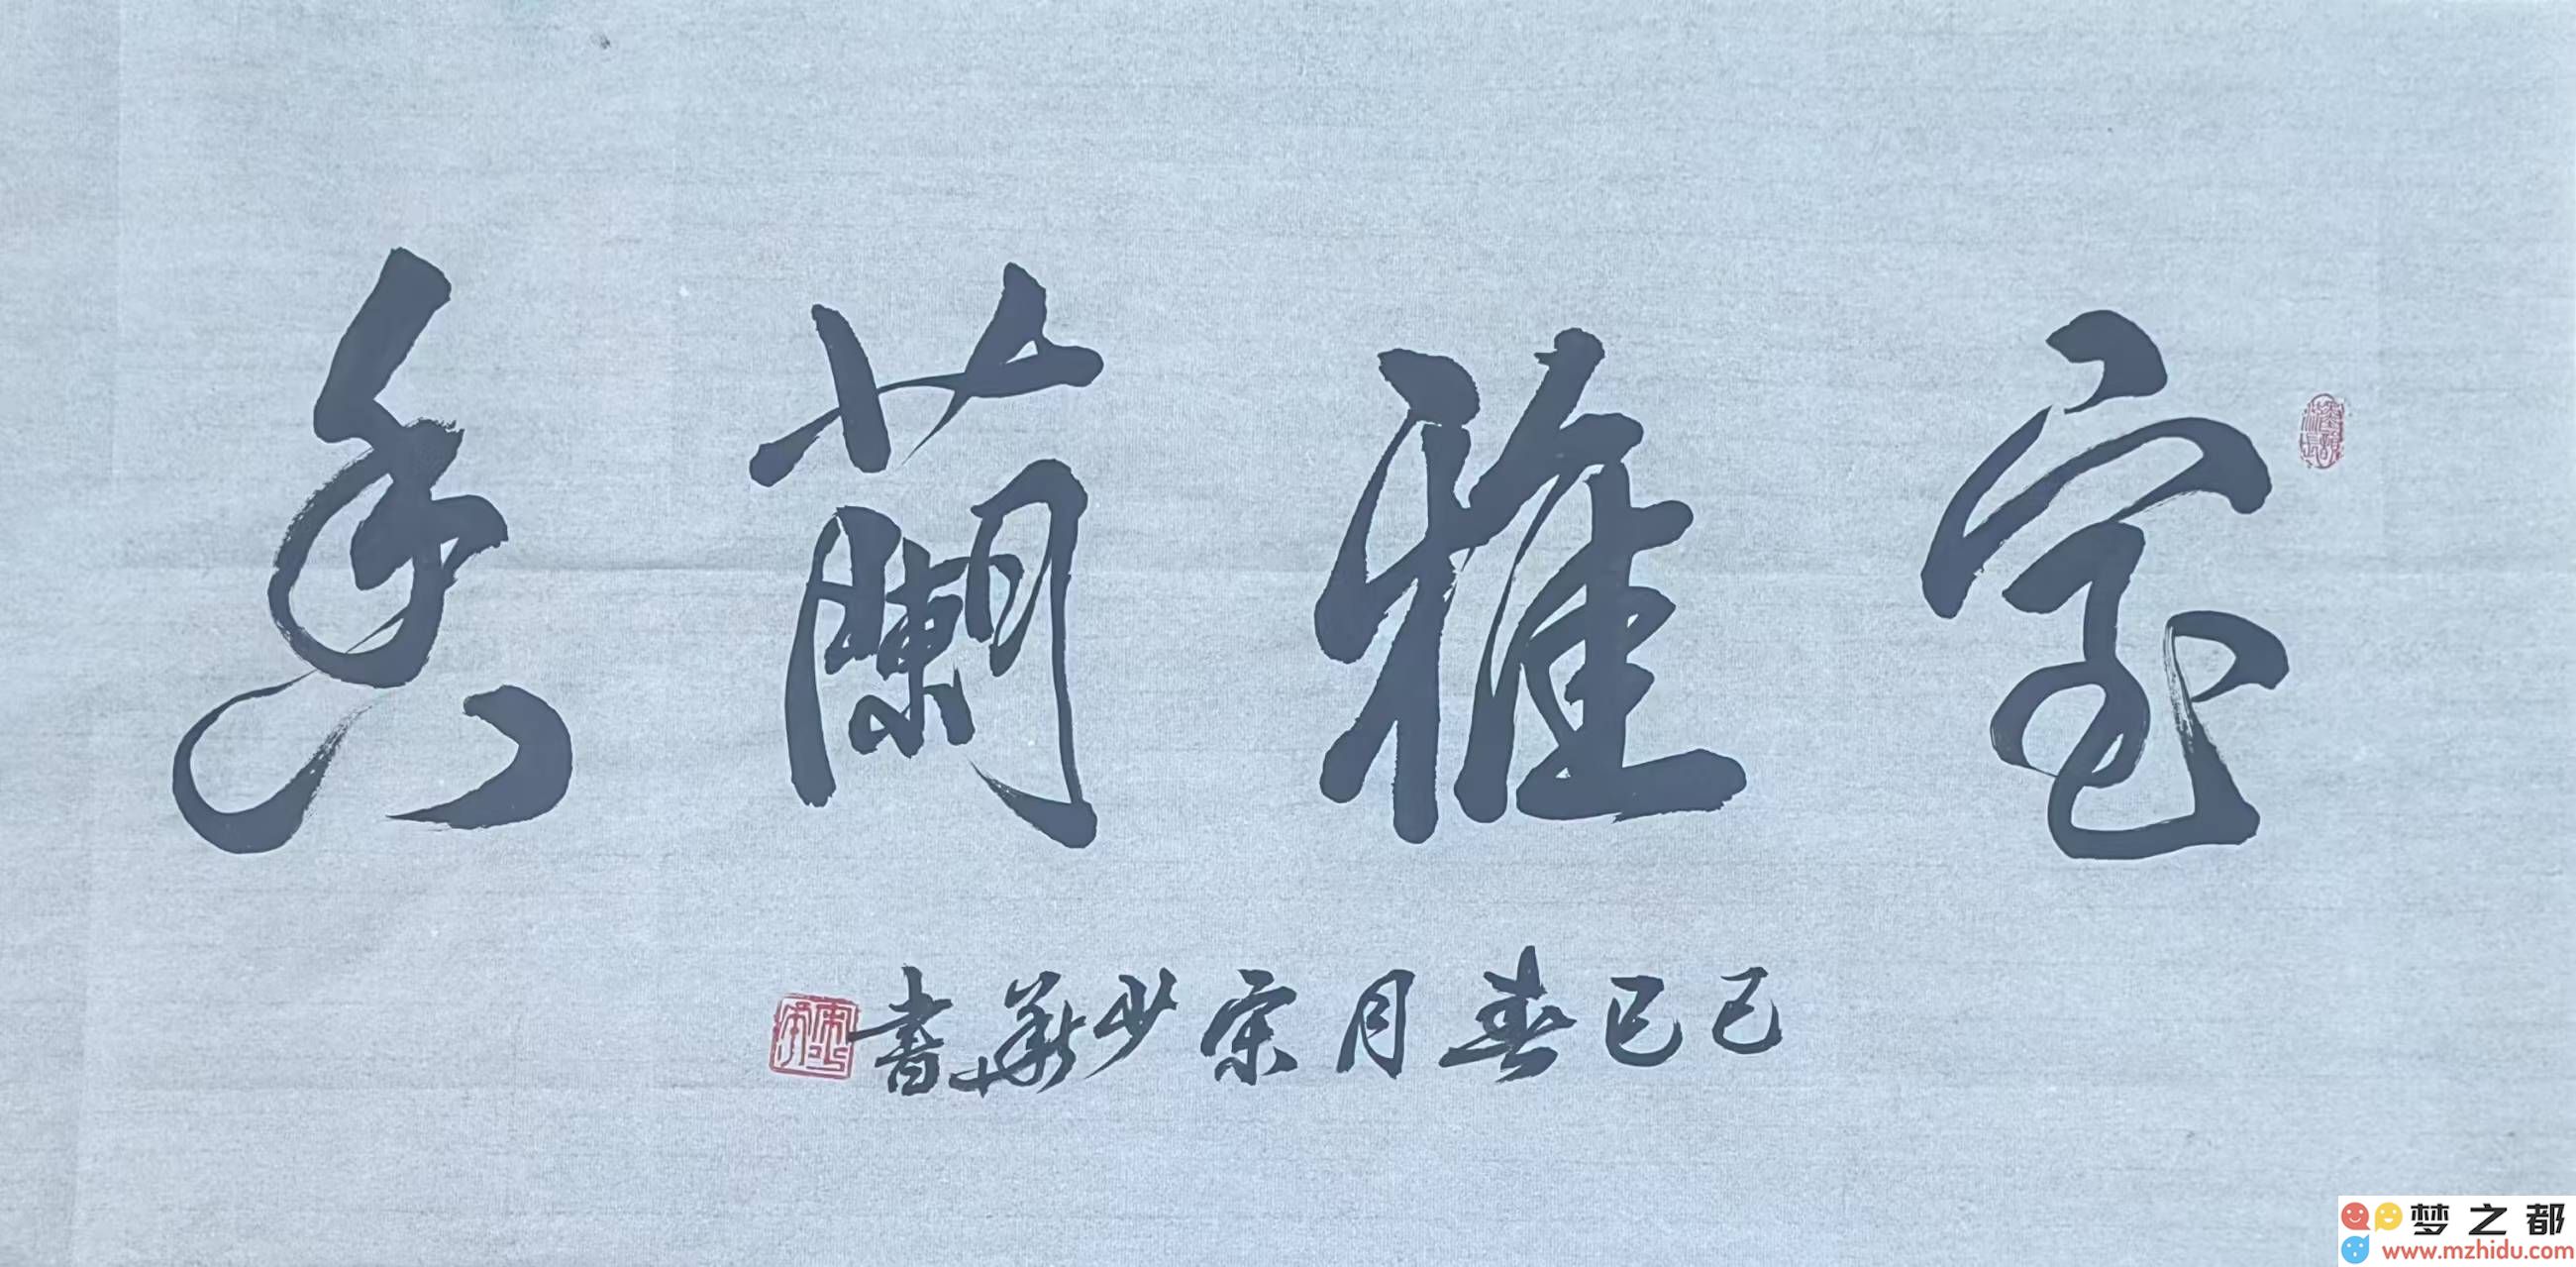 室雅蘭香
己巳春月宋少華書
梦之都
www.mzhidu.com